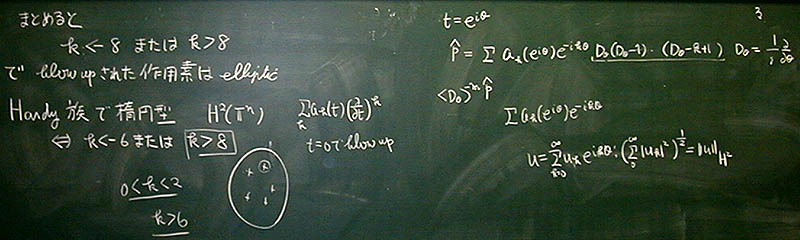 まとめると
k<-8 または k>8
で blow up された作用素は elliptic
Hardy 族で楕円型 H²(𝕋ⁿ)
⇔ k<-6 または k>8
0<k<2
k>6
Σ_k a_k(t)(∂/∂t)^k
t=0で blow up
t=e^{iθ}
P̂ = Σ a_k(e^{iθ})e^{-ikθ} D_θ(D_θ-1)··(D_θ-k+1) D_θ = 1/i ∂/∂θ
<D_θ>^{-m} P̂
Σ a_k(e^{iθ})e^{-ikθ}
u = Σ_{k=0}^∞ u_k e^{ikθ} : (Σ_0^∞ |u_k|²)^{1/2} = ‖u‖_{H²}
3